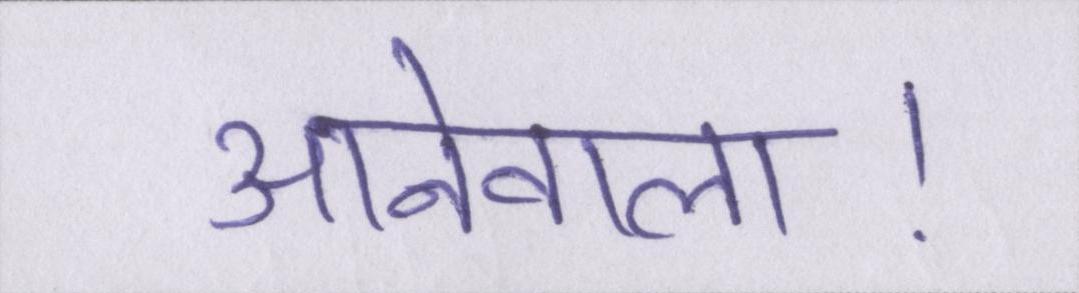 आनेवाला !